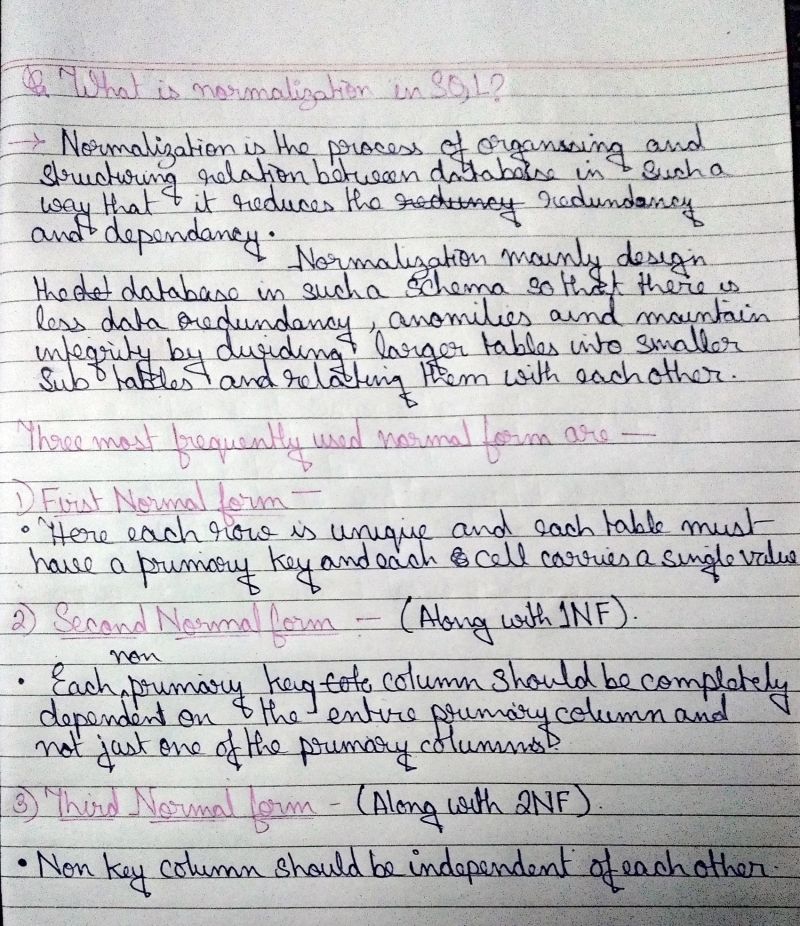 Q. What is normalization in SQL?
→ Normalization is the process of organising and
structuring relation between database in such a
way that it reduces the reduncy redundancy
and dependancy.
Normalization mainly design
the det database in such a schema so that there is
less data redundancy, anomilies and maintain
integrity by dividing larger tables into smaller
sub tables and relating them with each other.
Three most frequently used normal form are —
1) First Normal form —
• Here each row is unique and each table must
have a primary key and each cell carries a single value
2) Second Normal form — (Along with 1NF).
non
• Each primary key cole column should be completely
dependent on the entire primary column and
not just one of the primary columns.
3) Third Normal form - (Along with 2NF).
• Non key column should be independent of each other.